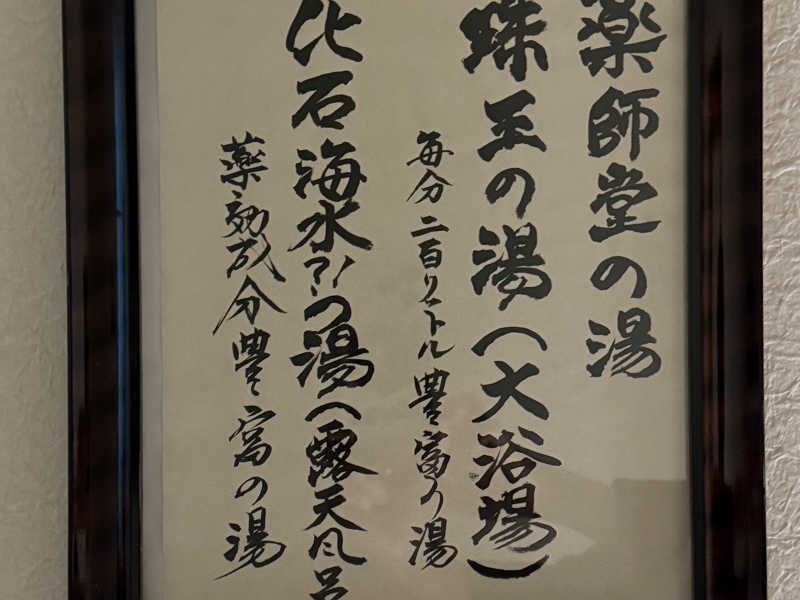 薬師堂の湯
珠玉の湯（大浴場）
毎分二百リットル豊富の湯
化石海水?!の湯（露天風呂
薬効成分豊富の湯